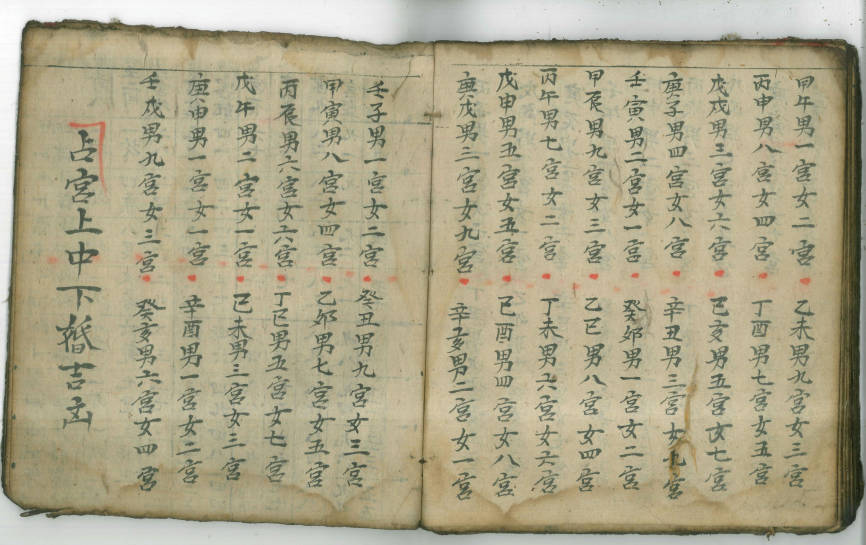 甲午男一宮女二宮 乙未男九宮女三宮
丙申男八宮女四宮 丁酉男七宮女五宮
戊戌男三宮女六宮 己亥男五宮女七宮
庚子男四宮女八宮 辛丑男三宮女九宮
壬寅男二宮女一宮 癸卯男一宮女二宮
甲辰男九宮女三宮 乙巳男八宮女四宮
丙午男七宮女二宮 丁未男六宮女六宮
戊申男五宮女五宮 己酉男四宮女八宮
庚戌男三宮女九宮 辛亥男二宮女一宮
壬子男一宮女二宮 癸丑男九宮女三宮
甲寅男八宮女四宮 乙卯男七宮女五宮
丙辰男六宮女六宮 丁巳男五宮女七宮
戊午男二宮女一宮 己未男三宮女三宮
庚申男一宮女一宮 辛酉男一宮女二宮
壬戌男九宮女三宮 癸亥男六宮女四宮
占宮上中下婚吉凶